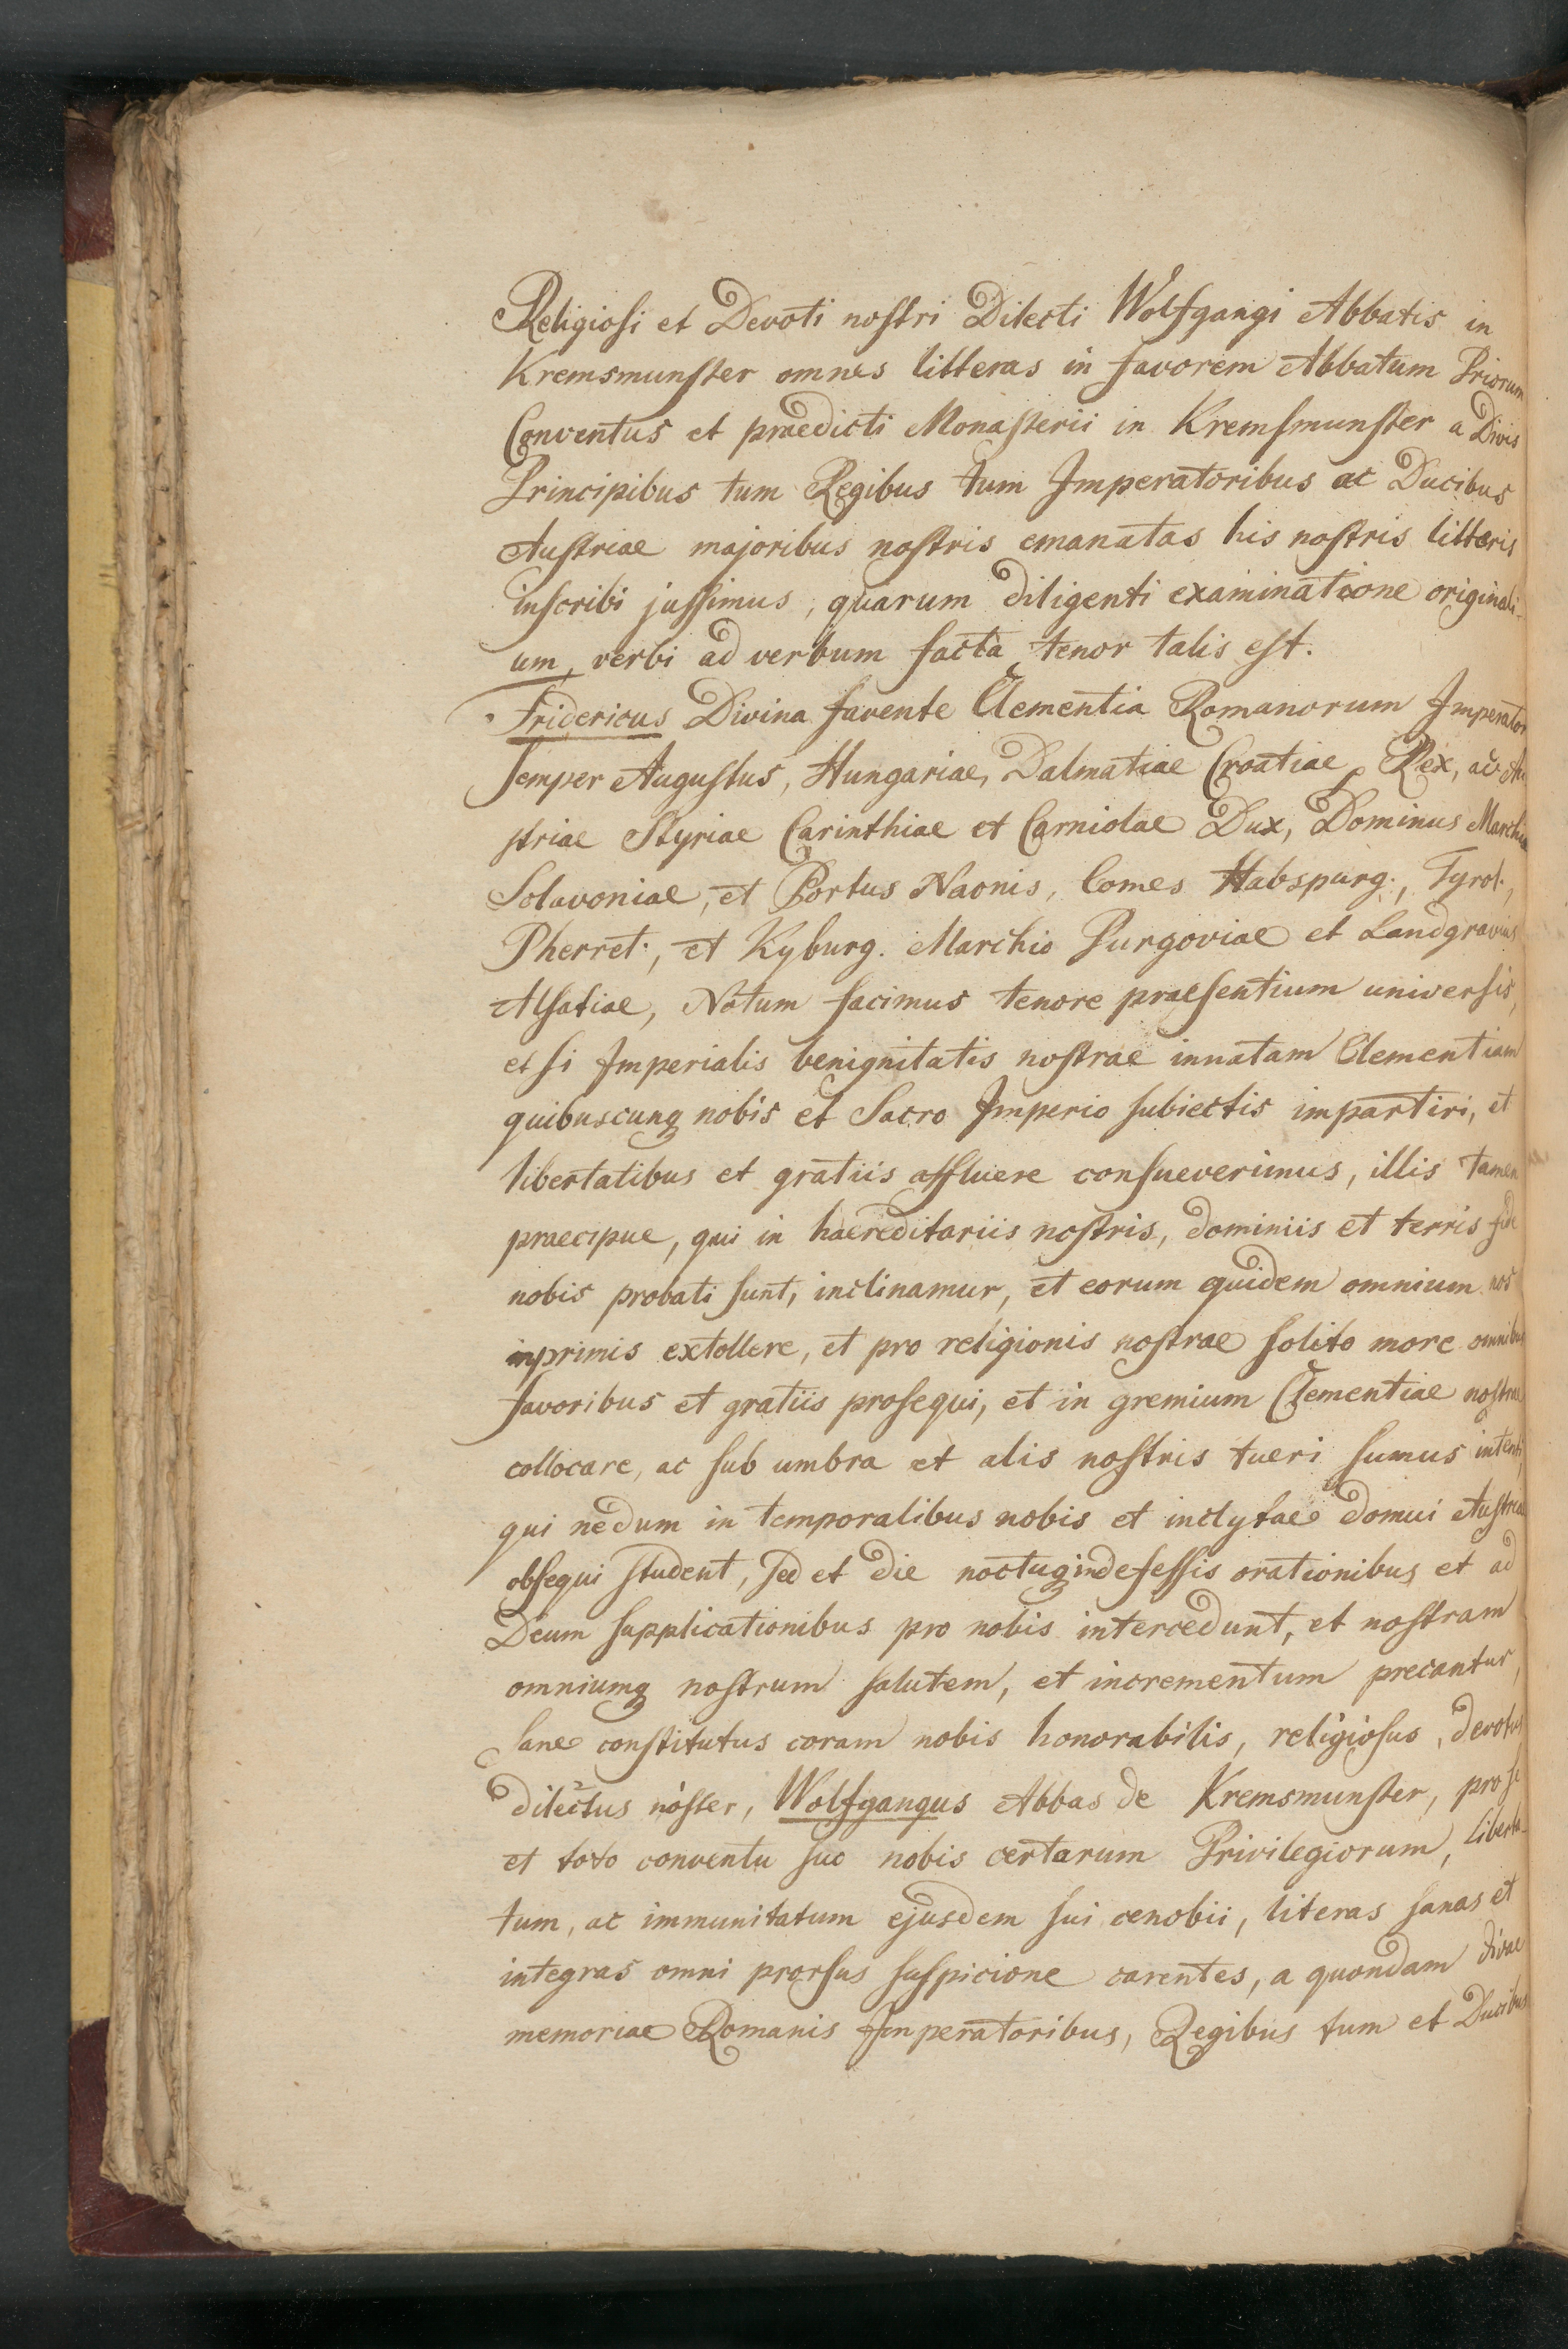 Religiosi et Devoti nostri Dilecti Wolfgangi Abbatis in
Kremsmunster omnes litteras in favorem Abbatum Priorum
Conventus et praedicti Monasterii in Kremsmunster a Divis
Principibus tum Regibus tum Imperatoribus ac Ducibus
Austriae majoribus nostris emanatas his nostris litteris
inscribi jussimus, quarum diligenti examinatione originali-
um, verbi ad verbum facta, tenor talis est.
Fridericus Divina favente Clementia Romanorum Imperator
Semper Augustus, Hungariae, Dalmatiae Croatiae, Rex, ac Au
striae Styriae Carinthiae et Carniolae Dux, Dominus Marchiae
Solavoniae, et Portus Naonis, Comes Habspurg., Tyrol.,
Pherret., et Kyburg. Marchio Purgoviae et Landgravius
Alsatiae, Notum facimus tenore praesentium universis,
et si Imperialis benignitatis nostrae innatam Clementiam
quibuscunq nobis et Sacro Imperio subiectis impartiri, et
libertatibus et gratiis affluere consueverimus, illis tamen
praecipue, qui in haereditariis nostris, dominiis et terris fide
nobis probati sunt, inclinamur, et eorum quidem omnium nos
inprimis extollere, et pro religionis nostrae solito more omnibus
favoribus et gratiis prosequi, et in gremium Clementiae nostrae
collocare, ac sub umbra et alis nostris tueri sumus intenti,
qui nedum in temporalibus nobis et inclytae domui Austriae
obsequi student, sed et die noctuq indefessis orationibus et ad
Deum supplicationibus pro nobis intercedunt, et nostram
omniumq nostrum salutem, et incrementum precantur,
Sane constitutus coram nobis honorabilis, religiosus, devotus
dilectus noster, Wolfgangus Abbas de Kremsmunster, pro se
et toto conventu suo nobis certarum Privilegiorum, liberta-
tum, ac immunitatum ejusdem sui cenobii, literas sanas et
integras omni prorsus suspicione carentes, a quondam divae
memoriae Romanis Imperatoribus, Regibus tum et Ducibus